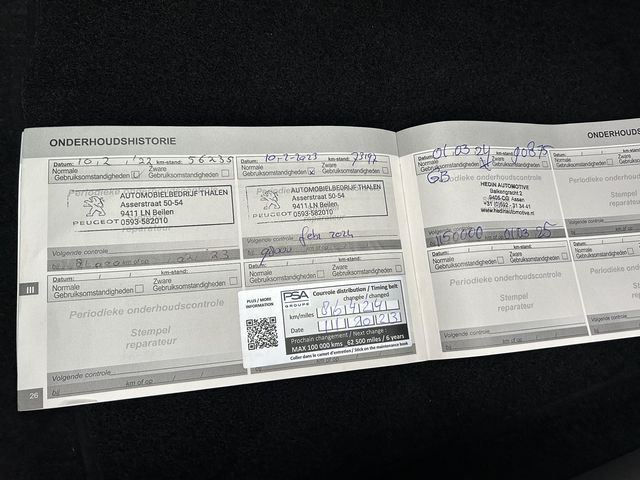 ONDERHOUDSHISTORIE
ONDERHOUDS
Datum: 10, 2, '22 km-stand: 56235
Normale Gebruiksomstandigheden
Zware Gebruiksomstandigheden
AUTOMOBIELBEDRIJF THALEN
Asserstraat 50-54
9411 LN Beilen
0593-582010
PEUGEOT
Volgende controle
km of op
Datum: 10-2-2023 km-stand: 73192
Normale Gebruiksomstandigheden x
Zware Gebruiksomstandigheden
AUTOMOBIELBEDRIJF THALEN
Asserstraat 50-54
9411 LN Beilen
0593-582010
PEUGEOT
Volgende controle
feb. 2024
Datum: 01.03.24 km-stand: 90875
Normale Gebruiksomstandigheden
Zware Gebruiksomstandigheden
GB
Periodieke onderhoudscontrole
HEDIN AUTOMOTIVE
Balkengracht 2
9405 CB Assen
www.hedinautomotive.nl
01.03.25
Datum:
Normale
Gebruiksomstandigheden
Periodieke onder
Stem
repara
Volgende controle
Datum: km-stand:
Normale Gebruiksomstandigheden
Zware Gebruiksomstandigheden
Periodieke onderhoudscontrole
Stempel
reparateur
Volgende controle
bij km of op
km-stand:
Zware Gebruiksomstandigheden
PLUS / MORE
INFORMATION
PSA
GROUPE
Courroie distribution / Timing belt
changée / changed
km/miles
Date
Prochain changement / Next change :
MAX 100 000 kms 62 500 miles / 6 years
Coller dans le carnet d'entretien / Stick on the maintenance book
Datum: km-stand:
Normale Gebruiksomstandigheden
Zware Gebruiksomstandigheden
Periodieke onderhoudscontrole
Stempel
reparateur
Volgende controle
bij km of op
Datum:
Normale
Gebruiksomstandigheden
Periodieke onde
Volgende controle
III
26